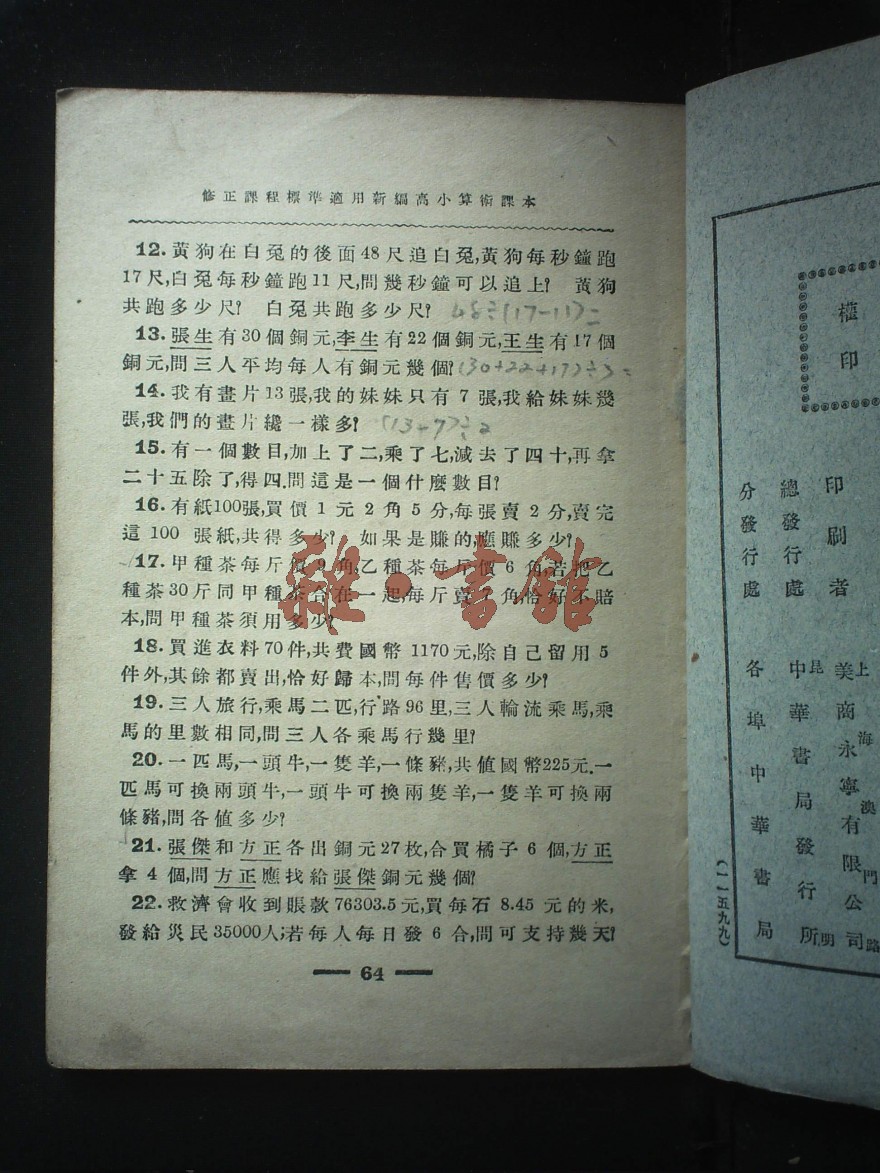 修正課程標準適用新編高小算術課本
12. 黃狗在白兔的後面48尺追白兔,黃狗每秒鐘跑
17尺,白兔每秒鐘跑11尺,問幾秒鐘可以追上? 黃狗
共跑多少尺? 白兔共跑多少尺? 48÷(17-11)=
13. 張生有30個銅元,李生有22個銅元,王生有17個
銅元,問三人平均每人有銅元幾個?(30+22+17)÷3=
14. 我有畫片13張,我的妹妹只有7張,我給妹妹幾
張,我們的畫片纔一樣多? (13-7)÷2
15. 有一個數目,加上了二,乘了七,減去了四十,再拿
二十五除了,得四.問這是一個什麼數目?
16. 有紙100張,買價1元2角5分,每張賣2分,賣完
這100張紙,共得多少? 如果是賺的,應賺多少?
17. 甲種茶每斤價9角,乙種茶每斤價6角,若把乙
種茶30斤同甲種茶合在一起,每斤賣7角,恰好不賠
本,問甲種茶須用多少?
18. 買進衣料70件,共費國幣1170元,除自己留用5
件外,其餘都賣出,恰好歸本,問每件售價多少?
19. 三人旅行,乘馬二匹,行路96里,三人輪流乘馬,乘
馬的里數相同,問三人各乘馬行幾里?
20. 一匹馬,一頭牛,一隻羊,一條豬,共値國幣225元.一
匹馬可換兩頭牛,一頭牛可換兩隻羊,一隻羊可換兩
條豬,問各値多少?
21. 張傑和方正各出銅元27枚,合買橘子6個,方正
拿4個,問方正應找給張傑銅元幾個?
22. 救濟會收到賬款76303.5元,買每石8.45元的米,
發給災民35000人;若每人每日發6合,問可支持幾天?
64
雜·書館
權
印
印刷者
上海澳門路
美商永寧有限公司
總發行處
昆明
中華書局發行所
分發行處
各埠中華書局
(一一五九九)